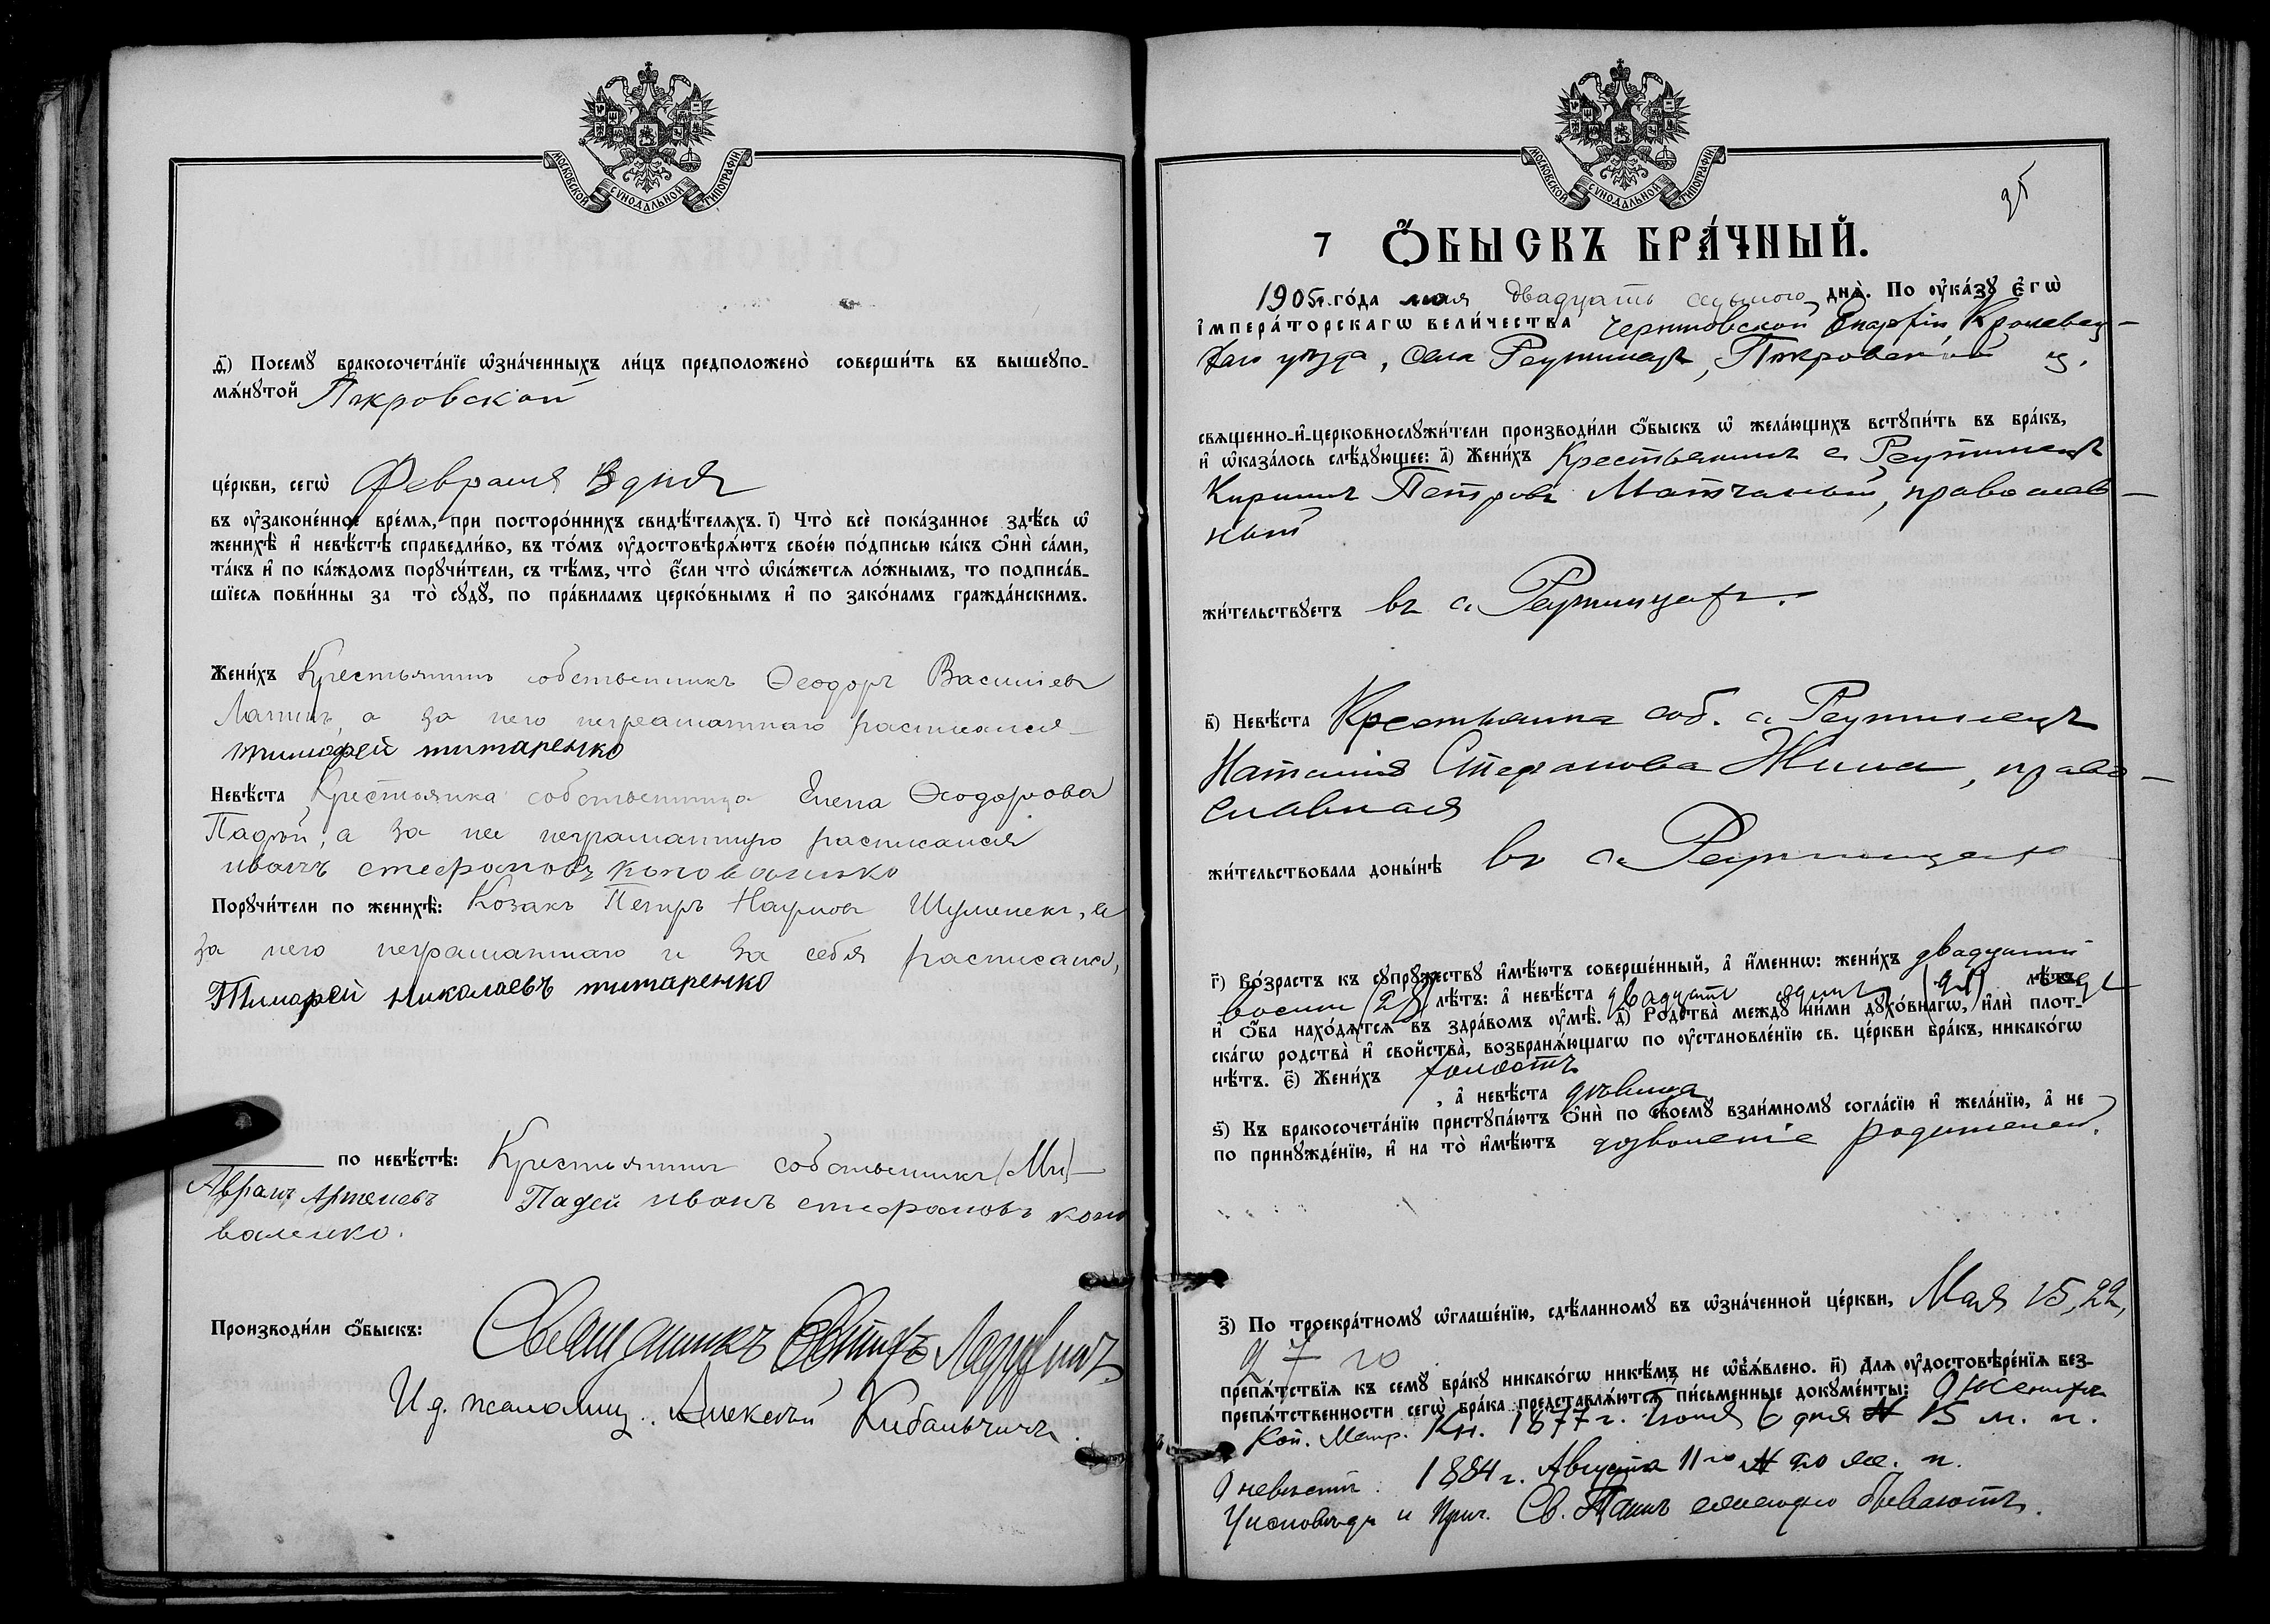 МОСКОВСКОЙ СѴНОДАЛЬНОЙ ТИПОГРАФІИ
д҃і) Посемꙋ̀ бракосочета́нїе ѡ҆зна́ченныхъ ли́цъ предположено̀ соверши́ть въ вышеꙋпо-
мѧ́нꙋтой Покровской
це́ркви, сегѡ̀ Февраля 8 дня
въ ᲂу҆зако́ненное вре́мѧ, при посторо́ннихъ свидѣ́телѧхъ. і҃) Что̀ всѐ пока́занное здѣ́сь ѡ҆
женихѣ̀ и҆ невѣ́стѣ справедли́во, въ то́мъ ᲂу҆достовѣрѧ́ютъ свое́ю по́дписью ка́къ ѻ҆нѝ са́ми,
та́къ и҆ по ка́ждомъ порꙋчи́тели, съ тѣ́мъ, что̀ є҆́сли что̀ ѡ҆ка́жетсѧ ло́жнымъ, то подписа́в-
шїесѧ пови́нны за то̀ сꙋдꙋ̀, по пра́виламъ церко́внымъ и҆ по зако́намъ гражда́нскимъ.
Жени́хъ Крестьянинъ собственникъ Ѳеодоръ Василіевъ
Лапинъ, а за него неграматнаго расписался
тимофей титаренко
Невѣ́ста Крестьянка собственница Елена Ѳеодорова
Падѣй, а за нее неграматную расписался
иванъ стефановъ коноваленко
Порꙋчи́тели по женихѣ̀: Козакъ Петръ Наумовъ Шуменекъ, а
за него неграматнаго и за себя расписался,
Тимафей николаевъ титаренко
по невѣ́стѣ: Крестьянинъ собственникъ
Аврамъ Артемовъ Падей иванъ стефановъ коно
валенко.
Производи́ли ѻ҆́быскъ: Священникъ
И д. псаломщ. Алексѣй Кибальчичъ.
МОСКОВСКОЙ СѴНОДАЛЬНОЙ ТИПОГРАФІИ
7 Ѻ҆́БЫСКЪ БРА́ЧНЫЙ.
1905 г. го́да мая двадцать седьмого днѧ̀. По ᲂу҆ка́зꙋ є҆гѡ̀
і҆мпера́торскагѡ вели́чества Черниговской Епархіи, Кролевец-
каго уѣзда, села Реутинецъ, Покровской ц.
свѧщенно-и҆-церковнослꙋжи́тели производи́ли ѻ҆́быскъ ѡ҆ жела́ющихъ встꙋпи́ть въ бра́къ,
и҆ ѡ҆каза́лось слѣ́дꙋющее: а҃) Жени́хъ Крестьянинъ с. Реутинецъ
Кириллъ Петровъ Матчаный, православ-
ный
жи́тельствꙋетъ въ с. Реутинцахъ.
в҃) Невѣ́ста Крестьянка соб. с. Реутинецъ
Наталія Стефанова Жила, право-
славная
жи́тельствовала доны́нѣ въ с. Реутинцахъ
г҃) Во́зрастъ къ сꙋпрꙋ́жествꙋ и҆мѣ́ютъ соверше́нный, а҆ и҆́меннѡ: жени́хъ двадцати
восьми (28) лѣ́тъ: а҆ невѣ́ста двадцать одинъ (21) лѣ́тъ
и҆ ѻ҆́ба нахо́дѧтсѧ въ здра́вомъ ᲂу҆мѣ̀. д҃) Родства̀ междꙋ̀ ни́ми дꙋхо́внагѡ, и҆лѝ плот-
ска́гѡ родства̀ и҆ сво́йства, возбранѧ́ющагѡ по ᲂу҆становле́нїю св. це́ркви бра́къ, никако́гѡ
нѣ́тъ. є҃) Жени́хъ холостъ
, а҆ невѣ́ста дѣвица
ѕ҃) Къ бракосочета́нїю пристꙋпа́ютъ ѻ҆нѝ по своемꙋ̀ взаи́мномꙋ согла́сїю и҆ жела́нїю, а҆ не
по принꙋжде́нїю, и҆ на то̀ и҆мѣ́ютъ дозволеніе родителей.
з҃) По троекра́тномꙋ ѡ҆глаше́нїю, сдѣ́ланномꙋ въ ѡ҆зна́ченной це́ркви, Мая 15, 22,
27 го
препѧ́тствїѧ къ семꙋ̀ бра́кꙋ никако́гѡ никѣ́мъ не ѡ҆б̾ѧ́влено. и҃) Длѧ ᲂу҆достовѣре́нїѧ без-
препѧ́тственности сегѡ̀ бра́ка представлѧ́ютсѧ пи́сьменные докꙋме́нты: О женихѣ
Коп. Метр. Кн. 1877 г. Іюня 6 дня № 15 м. п.
О невѣстѣ. 1884 г. Августа 11 го № 20 ж. п.
У исповѣди и Прич. Св. Таинъ ежегодно бываютъ.